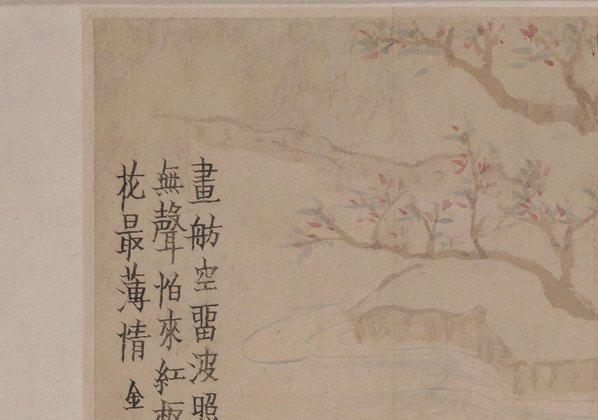 畫舫空畱波照
無聲怕來紅板
花最薄情 金